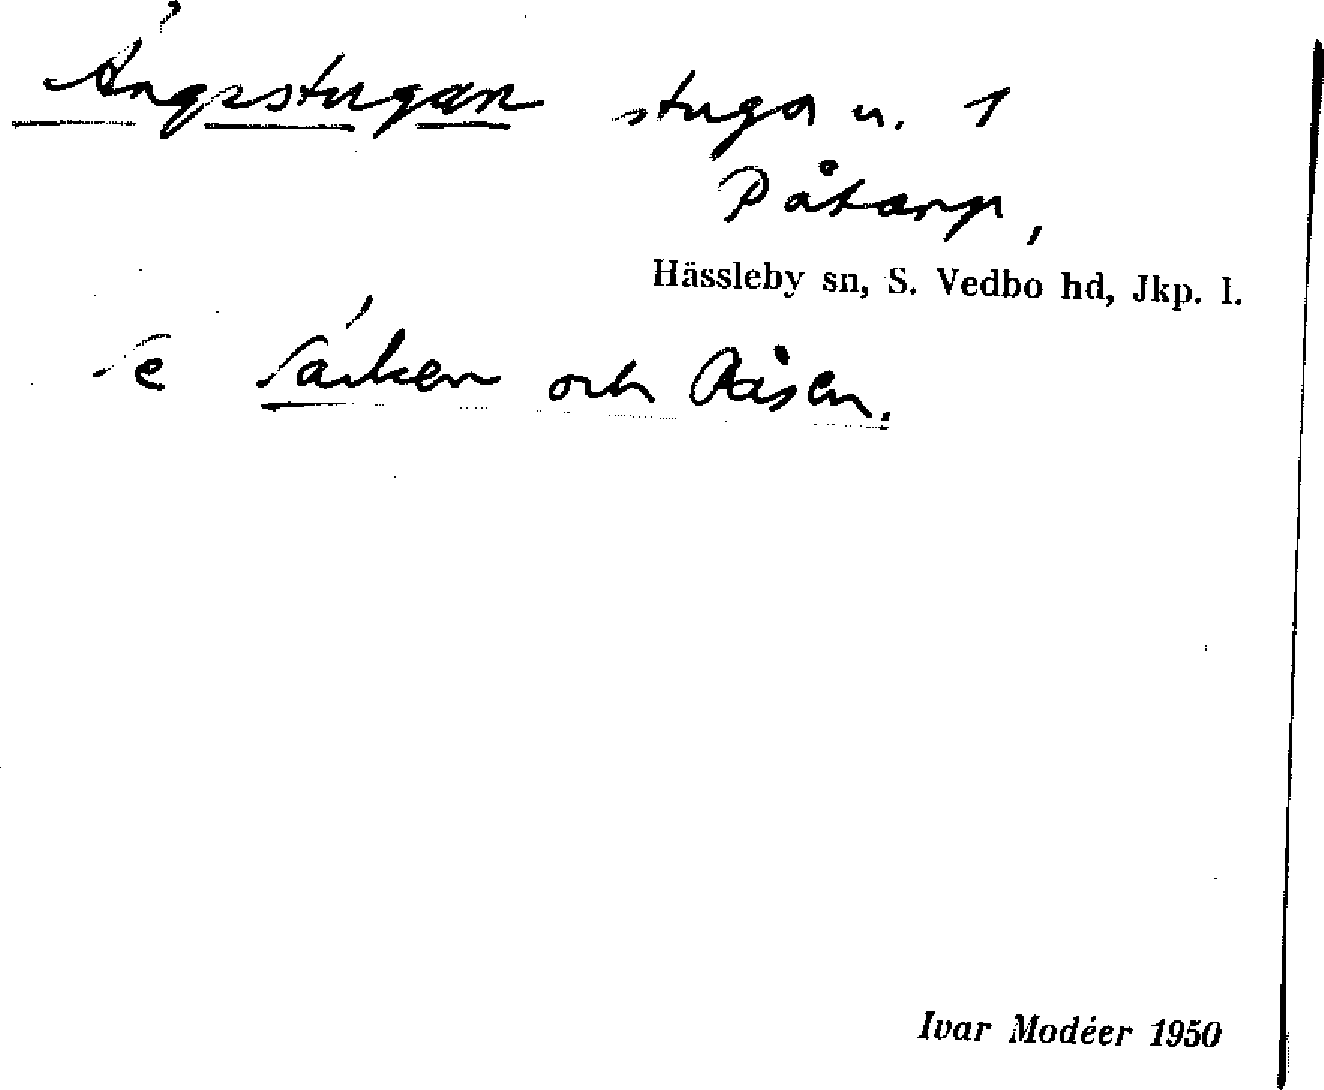 Ängsstugan stuga u. 1
Påtarp,
Hässleby sn, S. Vedbo hd, Jkp. l.
Se och Råsen.
Ivar Modéer 1950